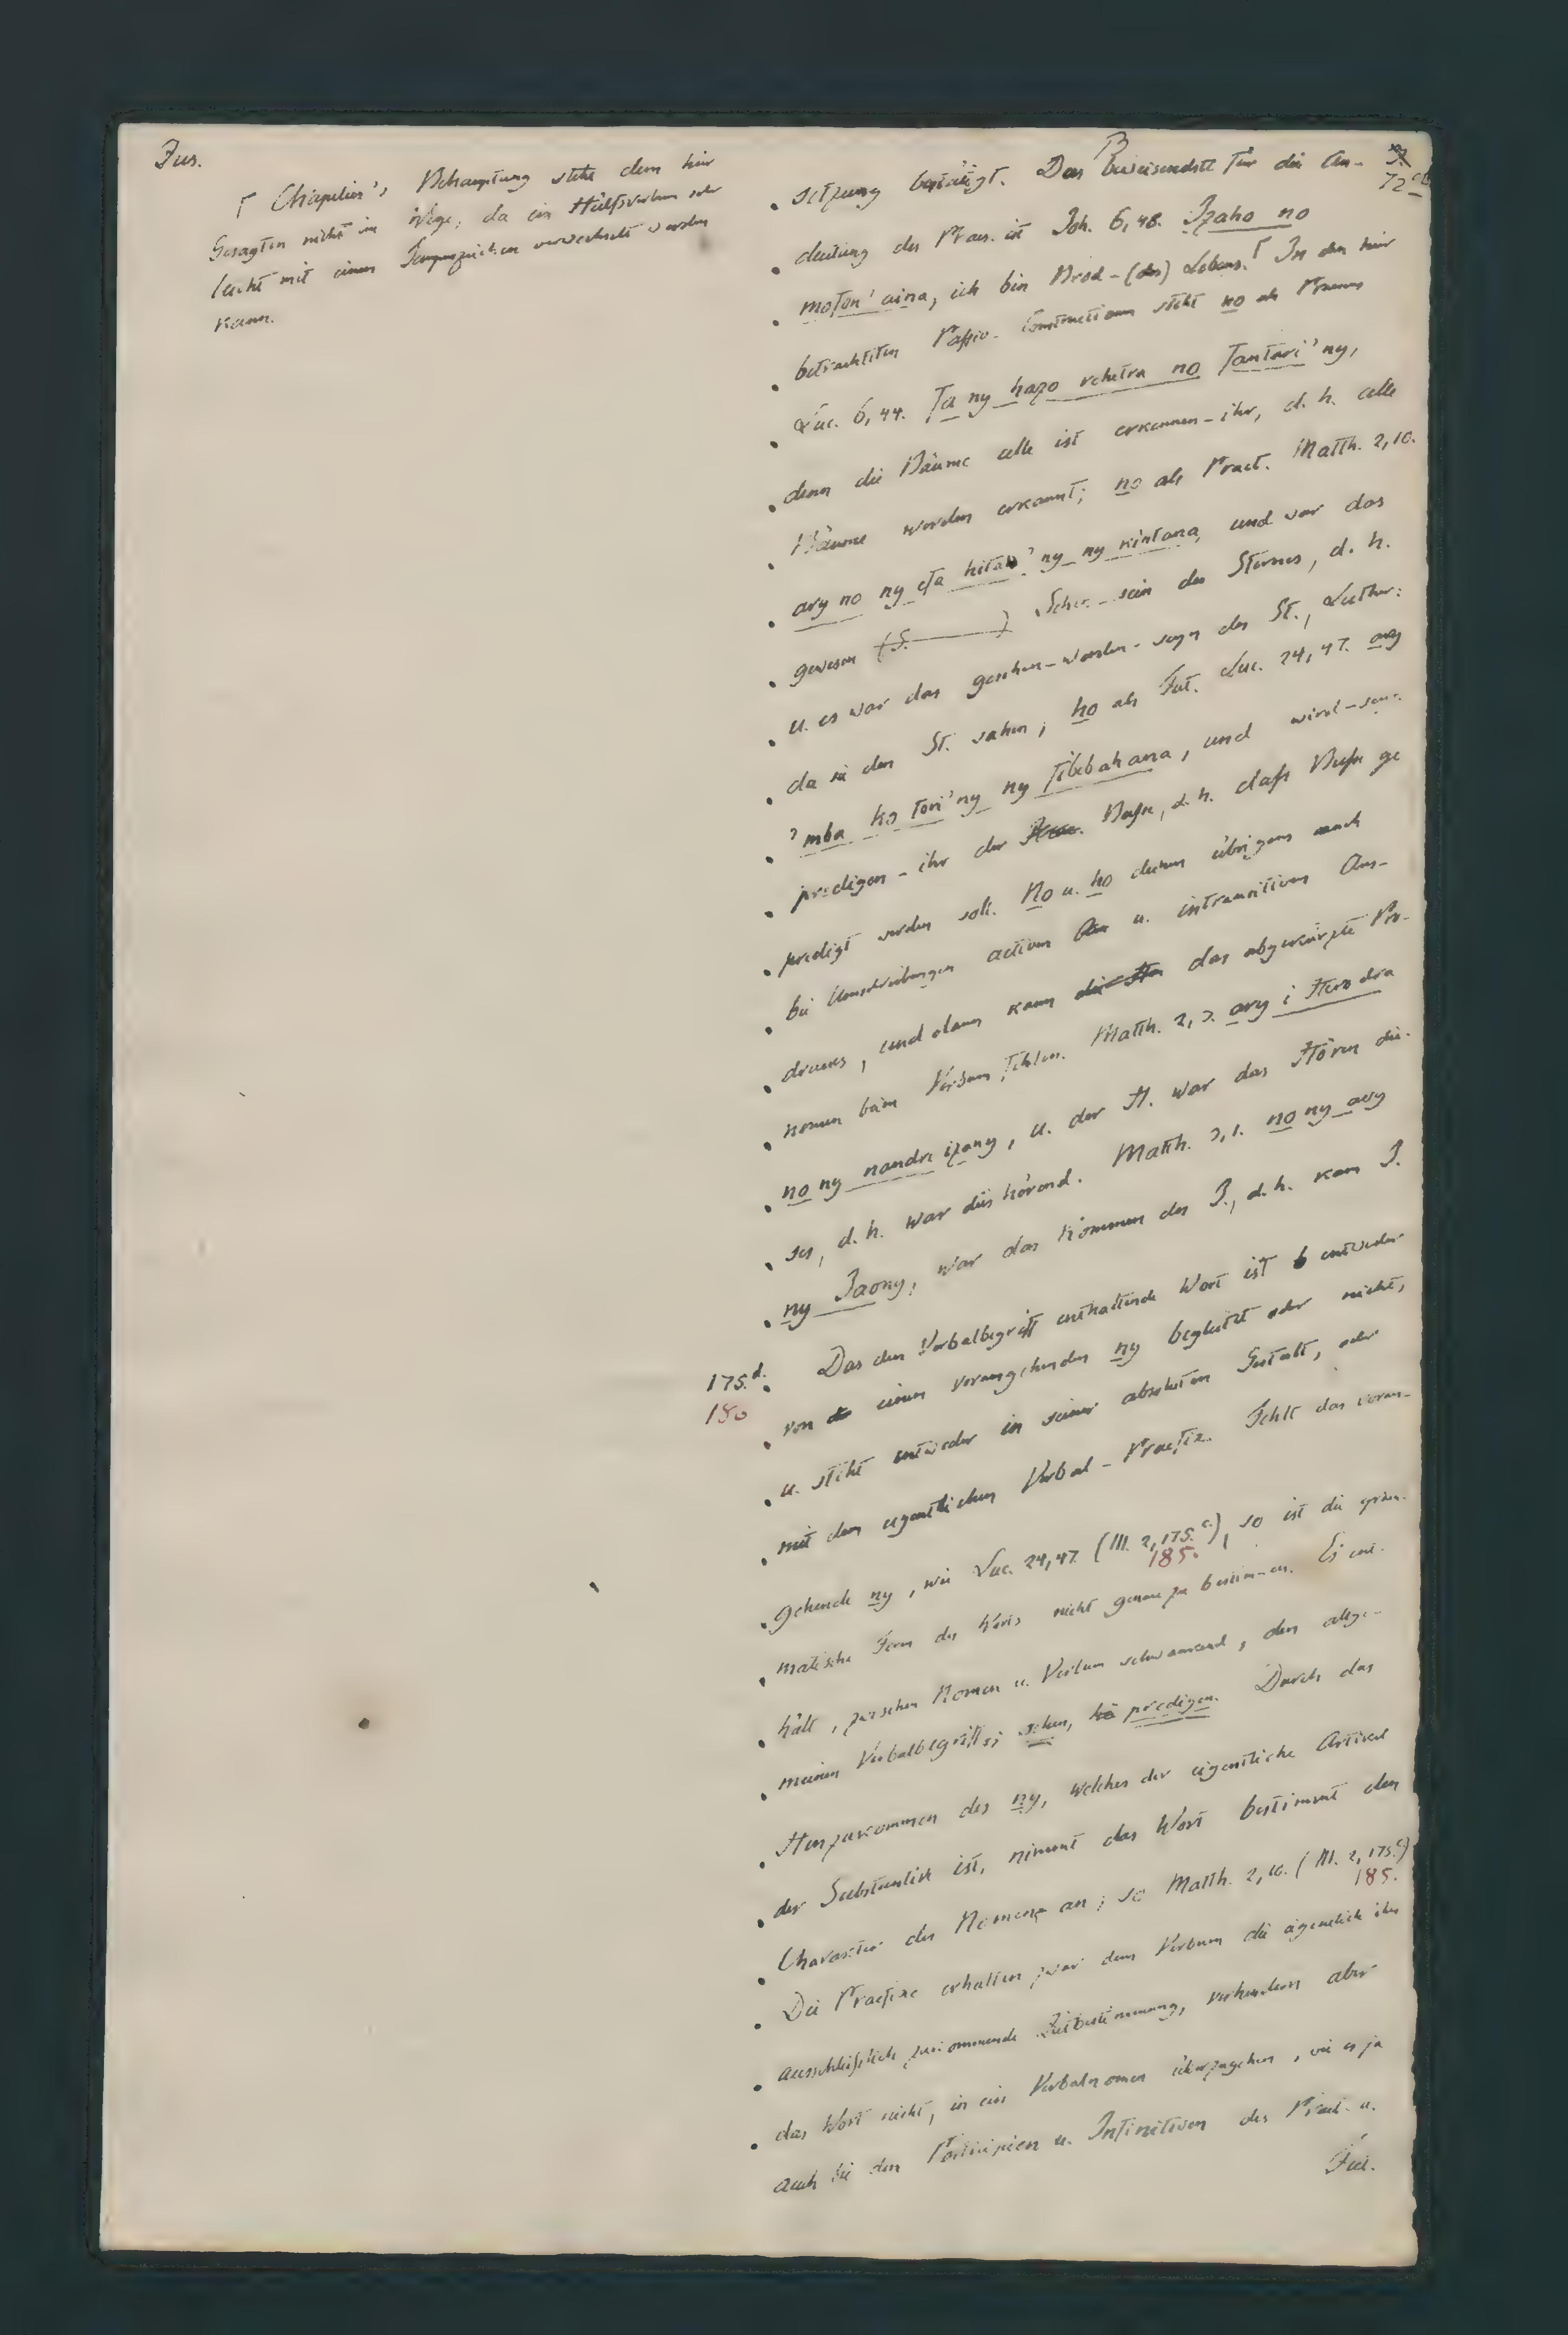 Zus.
Γ Chapelier's Behauptung steht dem hier
Gesagten nicht im Wege, da ein Hülfsverbum sehr
leicht mit einem Tempuszeichen verwechselt werden
kann.
72
setzung bestätigt. Das beweisendste für die An-
deutung des Praes. ist Joh. 6, 48. Izaho no
mofon' aina, ich bin Brod-(des) Lebens. Γ In den hier
betrachteten Passiv-Constructionen steht no als Praesens
Luc. 6, 44. Fa ny hazo rehetra no fantari' ny,
denn die Bäume alle ist erkennen-ihr, d. h. alle
Bäume werden erkannt; no als Praet. Matth. 2, 10.
ary no ny efa hita' ny ny kintana, und war das
gewesen Sehen-sein des Sternes, d. h.
u. es war das gesehen-worden-seyn des St., Luther:
da sie den St. sahen; ho als Fut. Luc. 24, 47. ary
'mba ho tori' ny ny fibebahana, und wird-seyn
predigen-ihr der Busse, d. h. dass Busse ge
predigt werden soll. No u. ho dienen übrigens auch
bei Umschreibungen activen u. intransitiven Aus-
drucks, und dann kann das abgekürzte Pro-
nomen beim Verbum fehlen. Matth. 2, 3. ary i Herodra
no ny nandre izany, u. der H. war das Hören die-
ses, d. h. war dies hörend. Matth. 3, 1. no ny avy
ny Jaony, war das Kommen des J., d. h. kam J.
175.d. Das den Verbalbegriff enthaltende Wort ist entweder
180 von einem vorangehenden ny begleitet oder nicht,
u. steht entweder in seiner absoluten Gestalt, oder
mit dem eigentlichen Verbal-Praefix. Fehlt das voran-
gehende ny, wie Luc. 24, 47. (III. 2, 175.c.), so ist die gram-
185.
matische Form des Worts nicht genau zu bestimmen. Es ent-
hält, zwischen Nomen u. Verbum schwankend, den allge-
meinen Verbalbegriff; sehen, predigen. Durch das
Hinzukommen des ny, welches der eigentliche Artikel
der Substantive ist, nimmt das Wort bestimmt den
Charakter des Nomens an; so Matth. 2, 10. (III. 2, 175.c.)
185.
Die Praefixe erhalten zwar dem Verbum die eigentlich ihm
ausschliesslich zukommende Zeitbestimmung, verhindern aber
das Wort nicht, in ein Verbalnomen überzugehen, wie es ja
auch bei den Participien u. Infinitiven des Praet. u.
Fut.